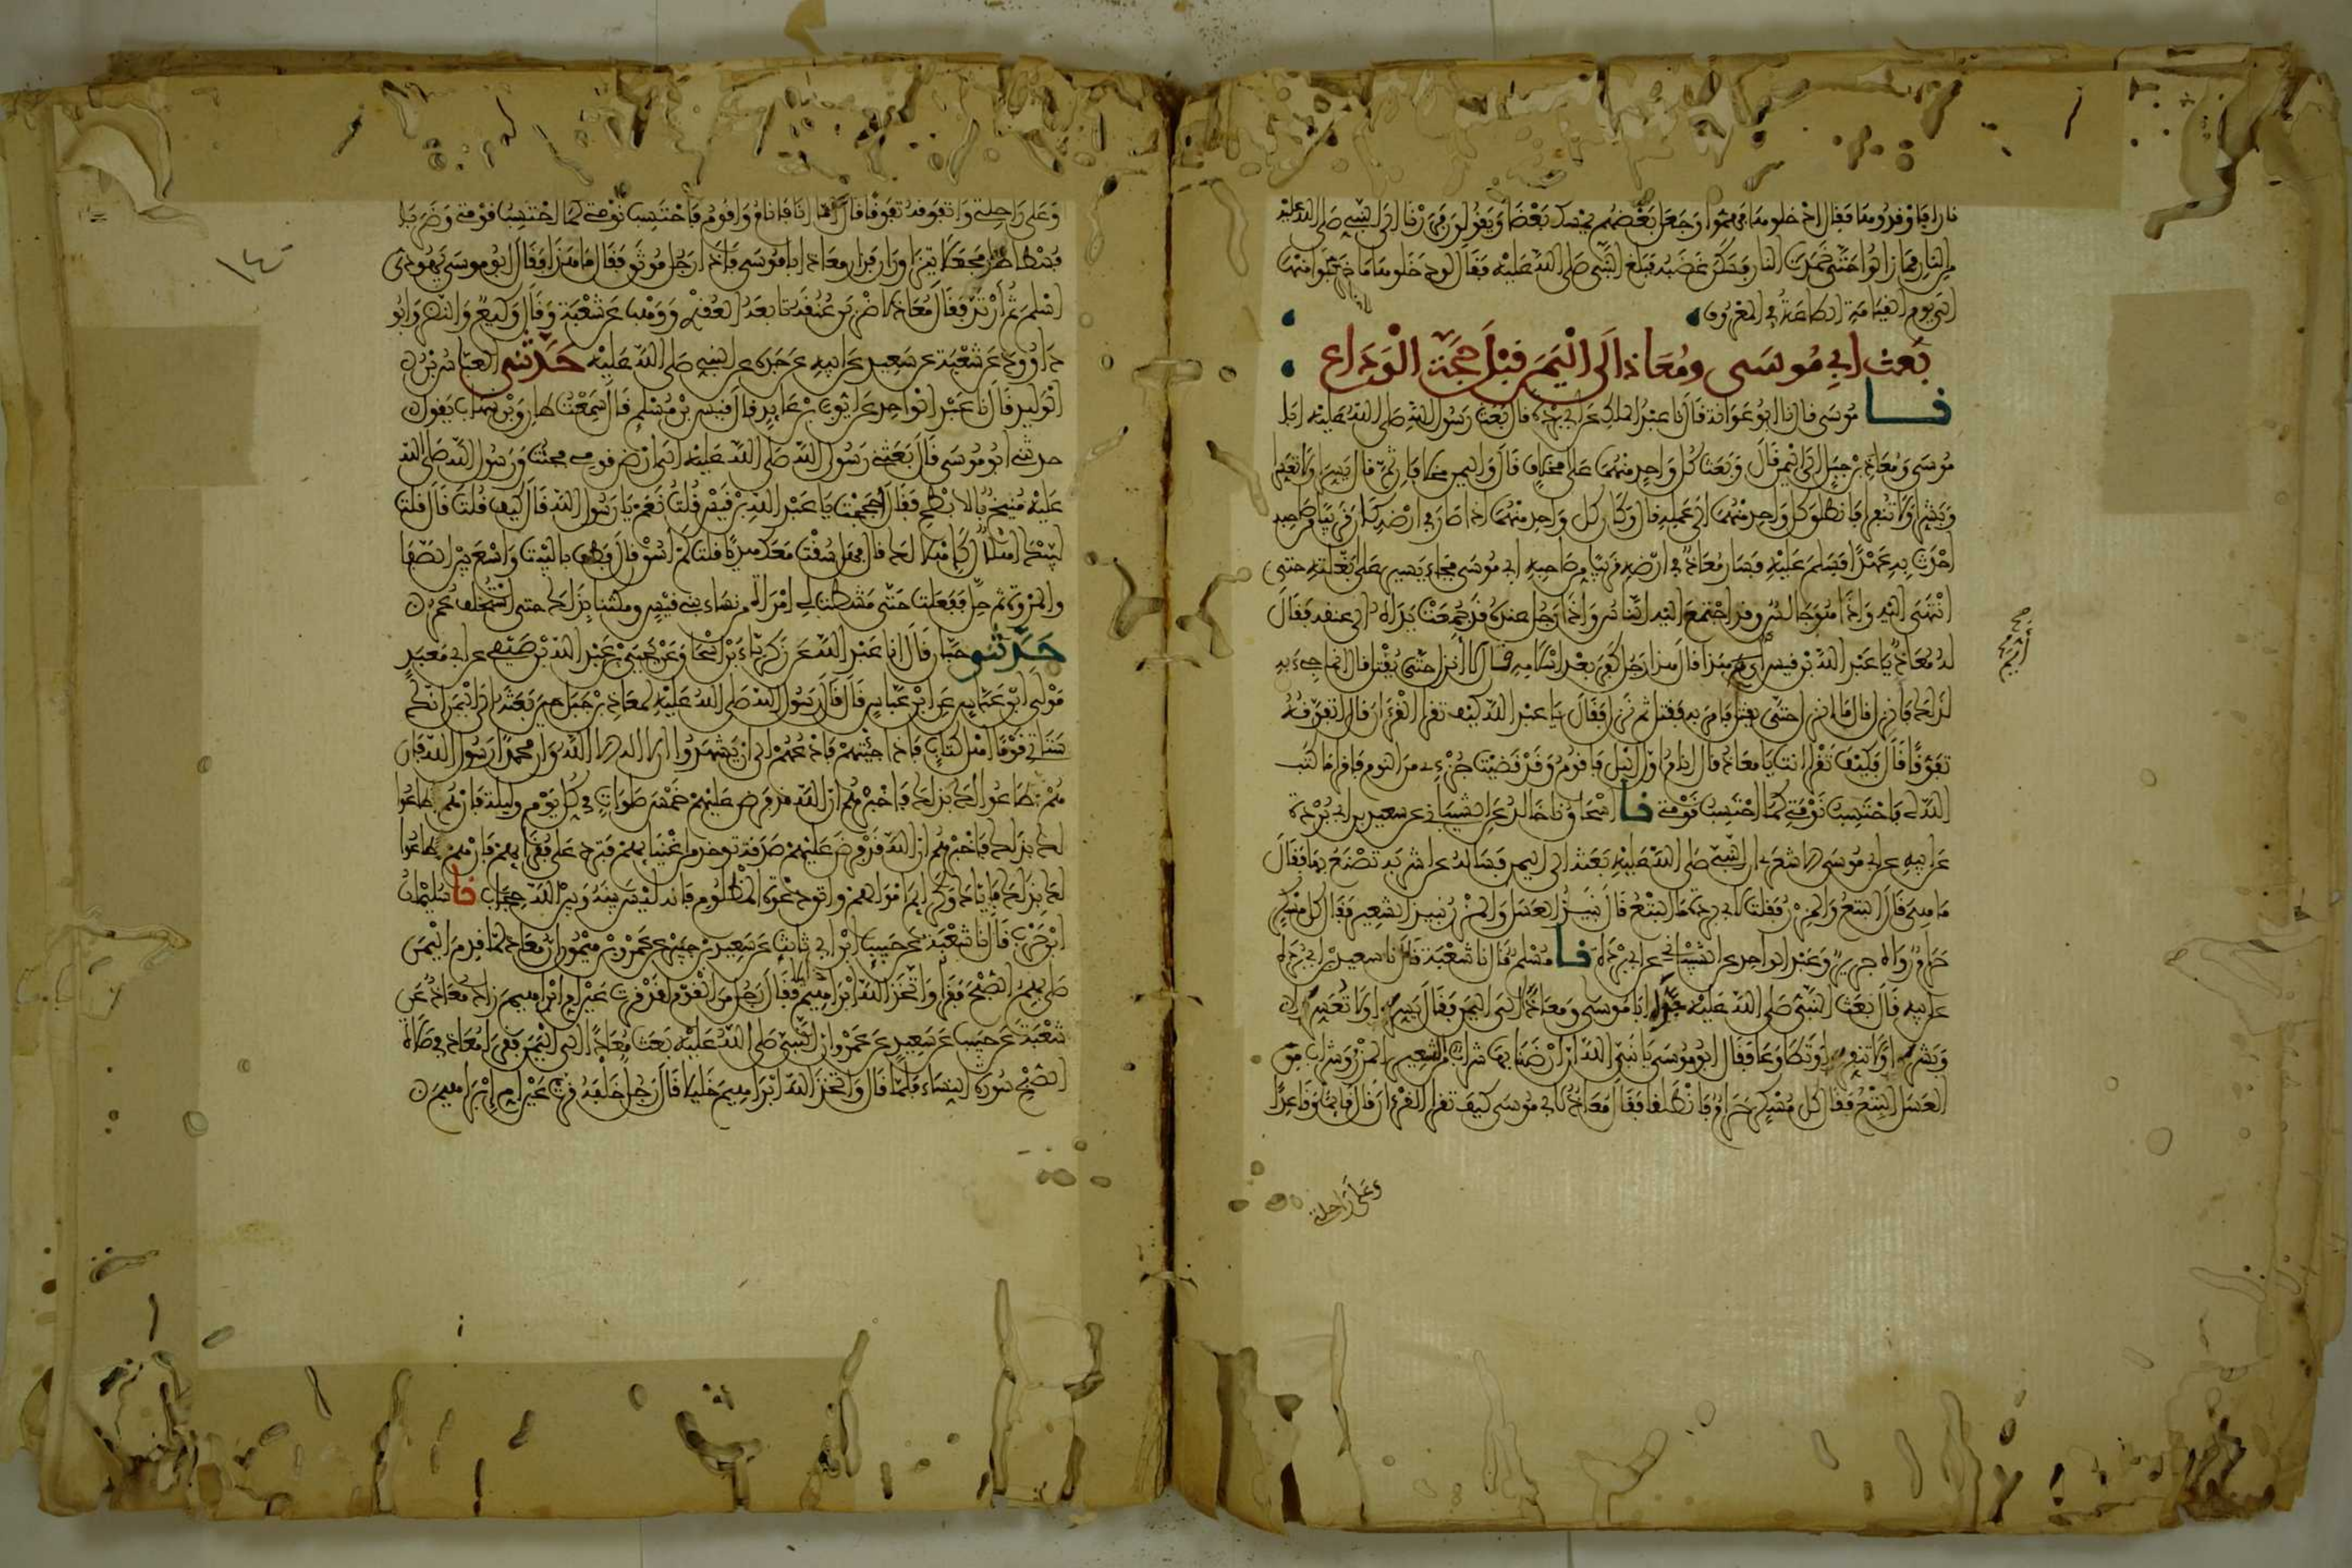 نارا فاوقدوها فقال ادخلوها فهموا وجعل بعضهم يمسك بعضا ويقولون فررنا الى النبي صلى الله عليه
من النار فما زالوا حتى خمدت النار فسكن غضبه فبلغ النبي صلى الله عليه فقال لو دخلوها ما خرجوا منها
الى يوم القيامة الطاعة في المعروف
بعث ابي موسى ومعاذ الى اليمن قبل حجة الوداع
نا موسى قال نا ابو عوانة قال نا عبد الملك عن ابي بردة قال بعث رسول الله صلى الله عليه ابا
موسى ومعاذ بن جبل الى اليمن قال وبعث كل واحد منهما على مخلاف قال واليمن مخلافان ثم قال يسرا ولا تعسرا
وبشرا ولا تنفرا فانطلق كل واحد منهما الى عمله قال وكان كل واحد منهما اذا صار في ارضه كان قريبا من صاحبه
احدث به عهدا فسلم عليه فسار معاذ في ارضه قريبا من صاحبه ابي موسى فجاء يسير على بغلته حتى
انتهى اليه واذا هو جالس وقد اجتمع اليه الناس واذا رجل عنده قد جمعت يداه الى عنقه فقال
له معاذ يا عبد الله بن قيس ايم هذا قال هذا رجل كفر بعد اسلامه قال لا انزل حتى يقتل قال انما جيء به
لذلك فانزل قال ما انزل حتى يقتل فامر به فقتل ثم نزل فقال يا عبد الله كيف تقرا القرءان قال اتفوقه
تفوقا قال فكيف تقرا انت يا معاذ قال انام اول الليل فاقوم وقد قضيت جزءي من النوم فاقرا ما كتب
الله لي فاحتسب نومتي كما احتسب قومتي نا اسحاق نا خالد عن الشيباني عن سعيد بن ابي بردة
عن ابيه عن ابي موسى الاشعري ان النبي صلى الله عليه بعثه الى اليمن فساله عن اشربة تصنع بها فقال
ما هي قال البتع والمزر فقلت لابي بردة ما البتع قال نبيذ العسل والمزر نبيذ الشعير فقال كل مسكر
حرام رواه جرير وعبد الواحد عن الشيباني عن ابي بردة نا مسلم قال نا شعبة قال نا سعيد بن ابي بردة
عن ابيه قال بعث النبي صلى الله عليه جده ابا موسى ومعاذا الى اليمن فقال يسرا ولا تعسرا
وبشرا ولا تنفرا وتطاوعا فقال ابو موسى يا نبي الله ان ارضنا بها شراب من الشعير المزر وشراب من
العسل البتع فقال كل مسكر حرام فانطلقا فقال معاذ لابي موسى كيف تقرا القرءان قال قائما وقاعدا
وعلى راحلته
وعلى راحلته واتفوقه تفوقا قال اما انا فانام واقوم فاحتسب نومتي كما احتسب قومتي وضرب
فسطاطا فجعلا يتزاوران فزار معاذ ابا موسى فاذا رجل موثق فقال ما هذا فقال ابو موسى يهودي
اسلم ثم ارتد فقال معاذ لاضربن عنقه تابعه العقدي ووهب عن شعبة وقال وكيع والنضر وابو
داوود عن شعبة عن سعيد عن ابيه عن جده عن النبي صلى الله عليه حدثني العباس بن
الوليد قال نا عبد الواحد عن ايوب بن عايد قال نا قيس بن مسلم قال سمعت طارق بن شهاب يقول
حدثني ابو موسى قال بعثني رسول الله صلى الله عليه الى ارض قومي فجئت ورسول الله صلى الله
عليه منيخ بالابطح فقال احججت يا عبد الله بن قيس قلت نعم يا رسول الله قال كيف قلت قال قلت
لبيك اهلالا كاهلالك قال فهل سقت معك هديا قلت لم اسق قال فطف بالبيت واسع بين الصفا
والمروة ثم حل ففعلت حتى مشطت لي امراة من نساء بني قيس ومكثنا بذلك حتى استخلف عمر
حدثني حبان قال انا عبد الله عن زكرياء بن اسحاق عن يحيى بن عبد الله بن صيفي عن ابي معبد
مولى ابن عباس عن ابن عباس قال قال رسول الله صلى الله عليه لمعاذ بن جبل حين بعثه الى اليمن انك
ستاتي قوما اهل كتاب فاذا جئتهم فادعهم الى ان يشهدوا ان لا اله الا الله وان محمدا رسول الله فان
هم اطاعوا لك بذلك فاخبرهم ان الله قد فرض عليهم خمس صلوات في كل يوم وليلة فان هم اطاعوا
لك بذلك فاخبرهم ان الله قد فرض عليهم صدقة توخذ من اغنيايهم فترد على فقرايهم فان هم اطاعوا
لك بذلك فاياك وكرايم اموالهم واتق دعوة المظلوم فانه ليس بينه وبين الله حجاب نا سليمان
ابن حرب قال نا شعبة عن حبيب ابن ابي ثابت عن سعيد بن جبير عن عمرو بن ميمون ان معاذا لما قدم اليمن
صلى بهم الصبح فقرا واتخذ الله ابراهيم خليلا فقال رجل من القوم لقد قرت عين ام ابراهيم زاد معاذ عن
شعبة عن حبيب عن سعيد عن عمرو ان النبي صلى الله عليه بعث معاذا الى اليمن فقرا معاذ في صلاة
الصبح سورة النساء فلما قال واتخذ الله ابراهيم خليلا قال رجل خلفه قرت عين ام ابراهيم